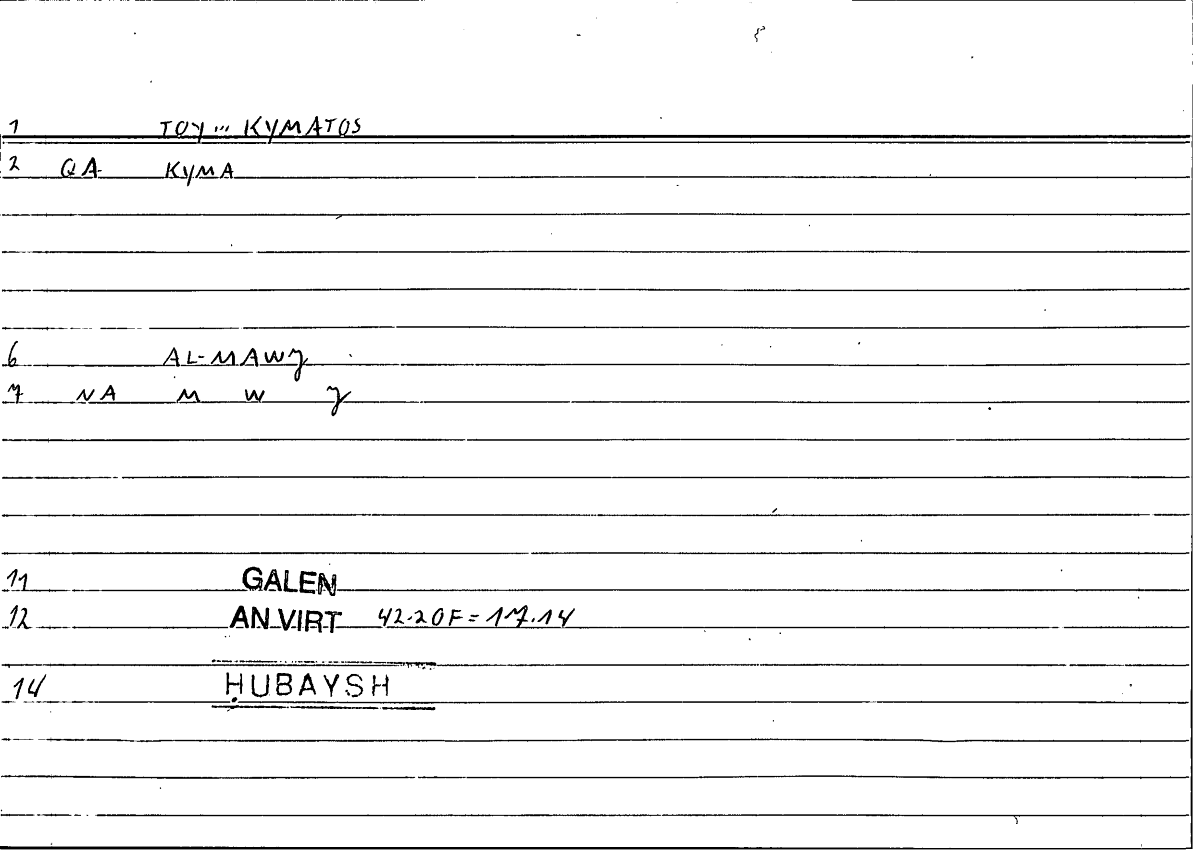 1 TOY ... KYMATOS
2 QA KYMA
6 AL-MAWJ
7 NA M W J
11 GALEN
12 AN VIRT 42.20F = 17.14
14 ḤUBAYSH